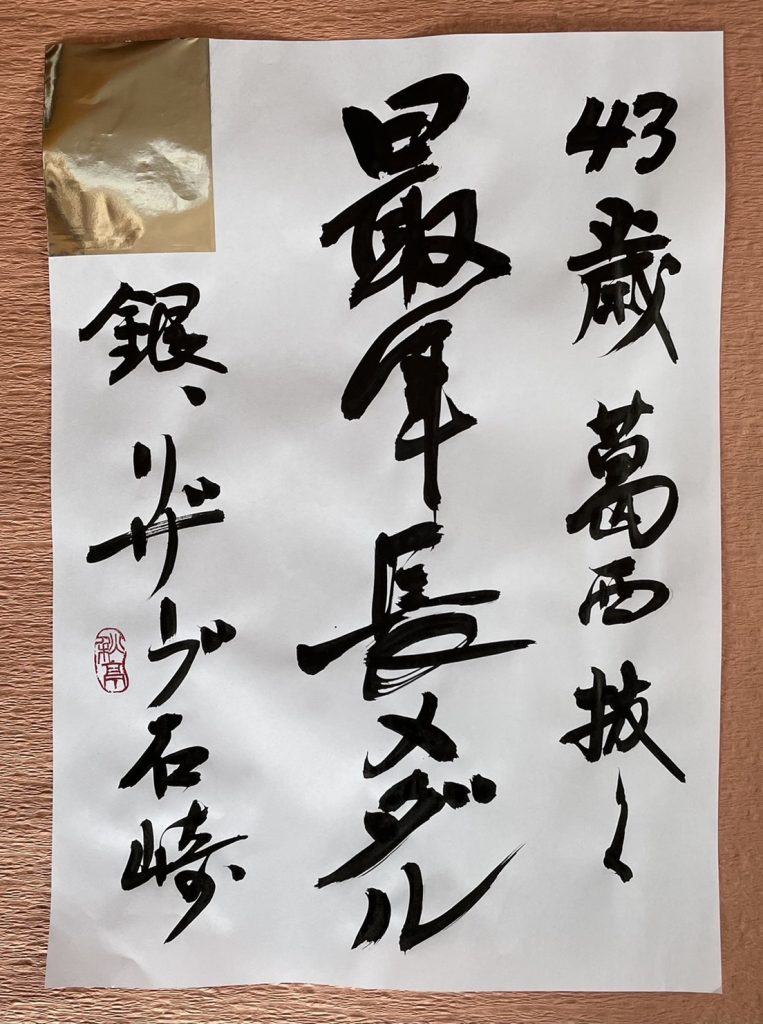 43歳 葛西 抜く
最年長メダル
銀、リザーブ石崎
秋亭